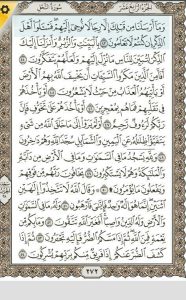 الجزء الرابع عشر
سورة النحل
وَمَا أَرْسَلْنَا مِن قَبْلِكَ إِلَّا رِجَالًا نُّوحِي إِلَيْهِمْ ۖ فَسْـَٔلُوا أَهْلَ
الذِّكْرِ إِن كُنتُمْ لَا تَعْلَمُونَ ٤٣ بِالْبَيِّنَٰتِ وَالزُّبُرِ ۗ وَأَنزَلْنَا إِلَيْكَ
الذِّكْرَ لِتُبَيِّنَ لِلنَّاسِ مَا نُزِّلَ إِلَيْهِمْ وَلَعَلَّهُمْ يَتَفَكَّرُونَ ٤٤
أَفَأَمِنَ الَّذِينَ مَكَرُوا السَّيِّـَٔاتِ أَن يَخْسِفَ اللَّهُ بِهِمُ الْأَرْضَ
أَوْ يَأْتِيَهُمُ الْعَذَابُ مِنْ حَيْثُ لَا يَشْعُرُونَ ٤٥ أَوْ يَأْخُذَهُمْ
فِي تَقَلُّبِهِمْ فَمَا هُم بِمُعْجِزِينَ ٤٦ أَوْ يَأْخُذَهُمْ عَلَىٰ تَخَوُّفٍ فَإِنَّ
رَبَّكُمْ لَرَءُوفٌ رَّحِيمٌ ٤٧ أَوَلَمْ يَرَوْا إِلَىٰ مَا خَلَقَ اللَّهُ مِن شَيْءٍ
يَتَفَيَّؤُا ظِلَٰلُهُ عَنِ الْيَمِينِ وَالشَّمَائِلِ سُجَّدًا لِّلَّهِ وَهُمْ دَٰخِرُونَ ٤٨
وَلِلَّهِ يَسْجُدُ مَا فِي السَّمَٰوَٰتِ وَمَا فِي الْأَرْضِ مِن دَابَّةٍ
وَالْمَلَٰئِكَةُ وَهُمْ لَا يَسْتَكْبِرُونَ ٤٩ يَخَافُونَ رَبَّهُم مِّن فَوْقِهِمْ
وَيَفْعَلُونَ مَا يُؤْمَرُونَ ۩ ٥٠ وَقَالَ اللَّهُ لَا تَتَّخِذُوا إِلَٰهَيْنِ
اثْنَيْنِ ۖ إِنَّمَا هُوَ إِلَٰهٌ وَٰحِدٌ ۖ فَإِيَّٰيَ فَارْهَبُونِ ٥١ وَلَهُ مَا فِي السَّمَٰوَٰتِ
وَالْأَرْضِ وَلَهُ الدِّينُ وَاصِبًا ۚ أَفَغَيْرَ اللَّهِ تَتَّقُونَ ٥٢ وَمَا بِكُم
مِّن نِّعْمَةٍ فَمِنَ اللَّهِ ۖ ثُمَّ إِذَا مَسَّكُمُ الضُّرُّ فَإِلَيْهِ تَجْـَٔرُونَ ٥٣ ثُمَّ إِذَا
كَشَفَ الضُّرَّ عَنكُمْ إِذَا فَرِيقٌ مِّنكُم بِرَبِّهِمْ يُشْرِكُونَ ٥٤
٢٧٢